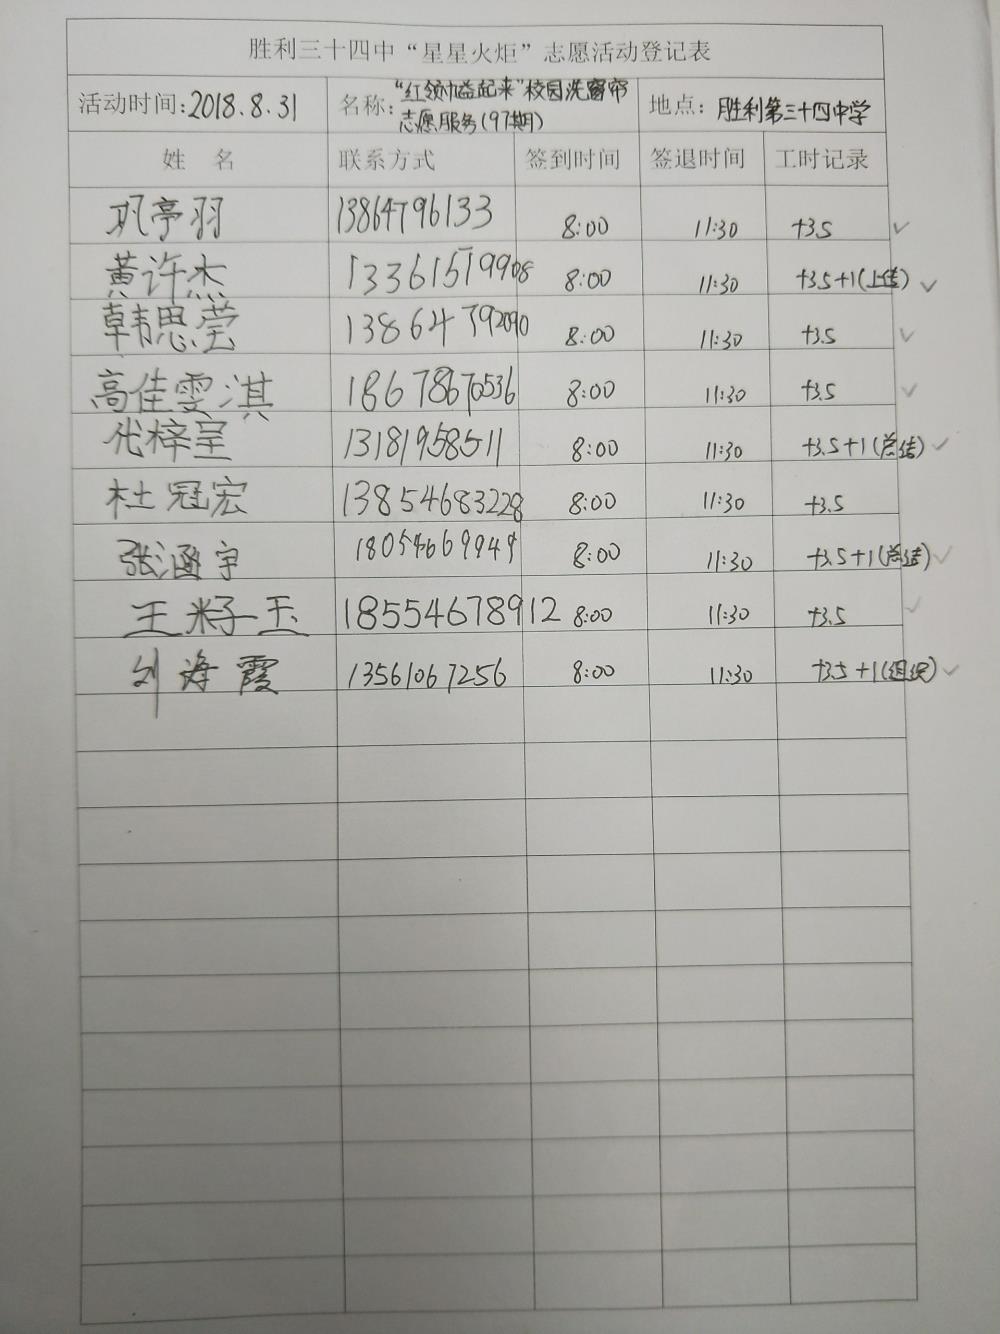 胜利三十四中“星星火炬”志愿活动登记表
活动时间:2018.8.31 名称:“红领巾益起来”校园洗窗帘 地点:胜利第三十四中学
志愿服务(97期)
姓 名 联系方式 签到时间 签退时间 工时记录
巩亭羽 13864796133 8:00 11:30 +3.5 ✓
黄许杰 13361519908 8:00 11:30 +3.5+1(上传) ✓
韩思莹 13864792090 8:00 11:30 +3.5 ✓
高佳雯淇 18678670536 8:00 11:30 +3.5 ✓
代梓呈 13181958511 8:00 11:30 +3.5+1(总结) ✓
杜冠宏 13854683228 8:00 11:30 +3.5
张涵宇 18054669949 8:00 11:30 +3.5+1(总结) ✓
王籽玉 18554678912 8:00 11:30 +3.5 ✓
刘海霞 13561067256 8:00 11:30 +3.5+1(组织) ✓